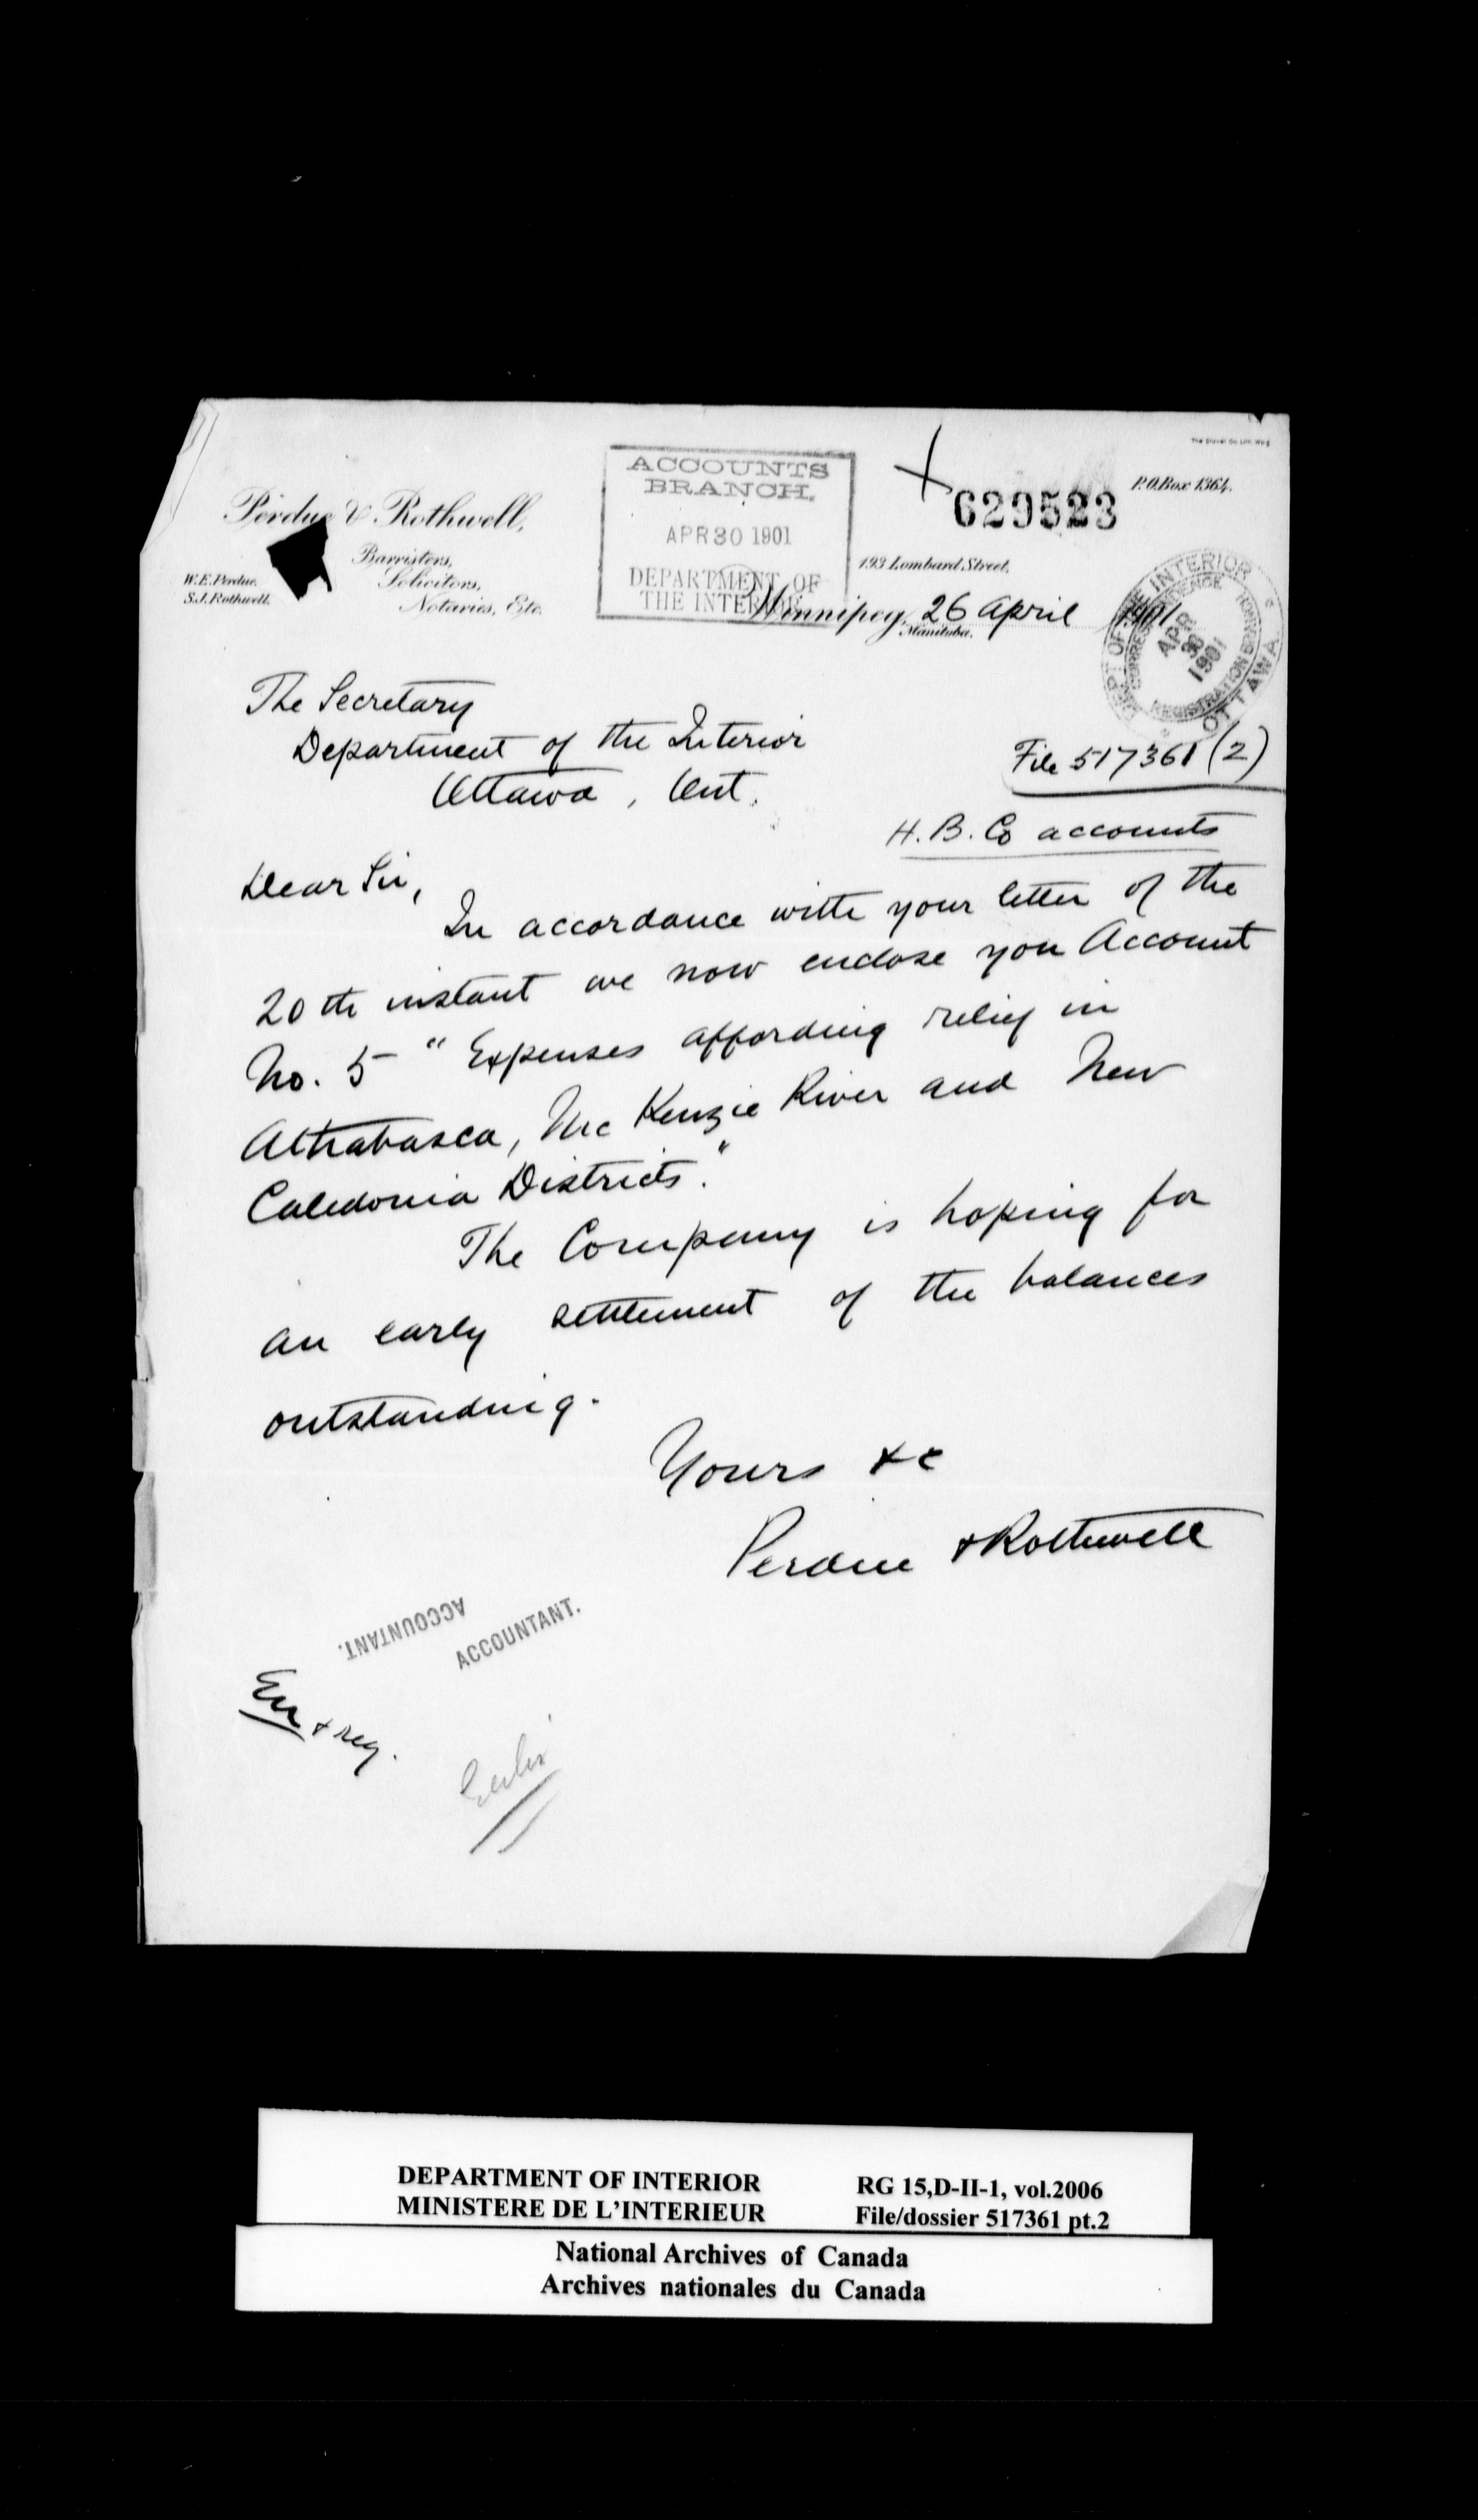 The Stovel Co. Lith. Wpg
P.O. Box 1364.
629523
Perdue & Rothwell,
Barristers,
Solicitors,
Notaries, Etc.
W. E. Perdue.
S. J. Rothwell.
ACCOUNTS
BRANCH.
APR 30 1901
DEPARTMENT OF
THE INTERIOR
193 Lombard Street,
Winnipeg, 26 April 1901
Manitoba.
DEPT OF THE INTERIOR
CORRESPONDENCE
APR
30
1901
REGISTRATION BRANCH
OTTAWA
The Secretary
Department of the Interior
Ottawa, Ont.
File 517361 (2)
H. B. Co accounts
Dear Sir,
In accordance with your letter of the
20th instant we now enclose you Account
No. 5 "Expenses affording relief in
Athabasca, McKenzie River and New
Caledonia Districts."
The Company is hoping for
an early settlement of the balances
outstanding.
Yours &c
Perdue & Rothwell
ACCOUNTANT.
ACCOUNTANT.
En & reg.
DEPARTMENT OF INTERIOR
MINISTERE DE L'INTERIEUR
RG 15,D-II-1, vol.2006
File/dossier 517361 pt.2
National Archives of Canada
Archives nationales du Canada